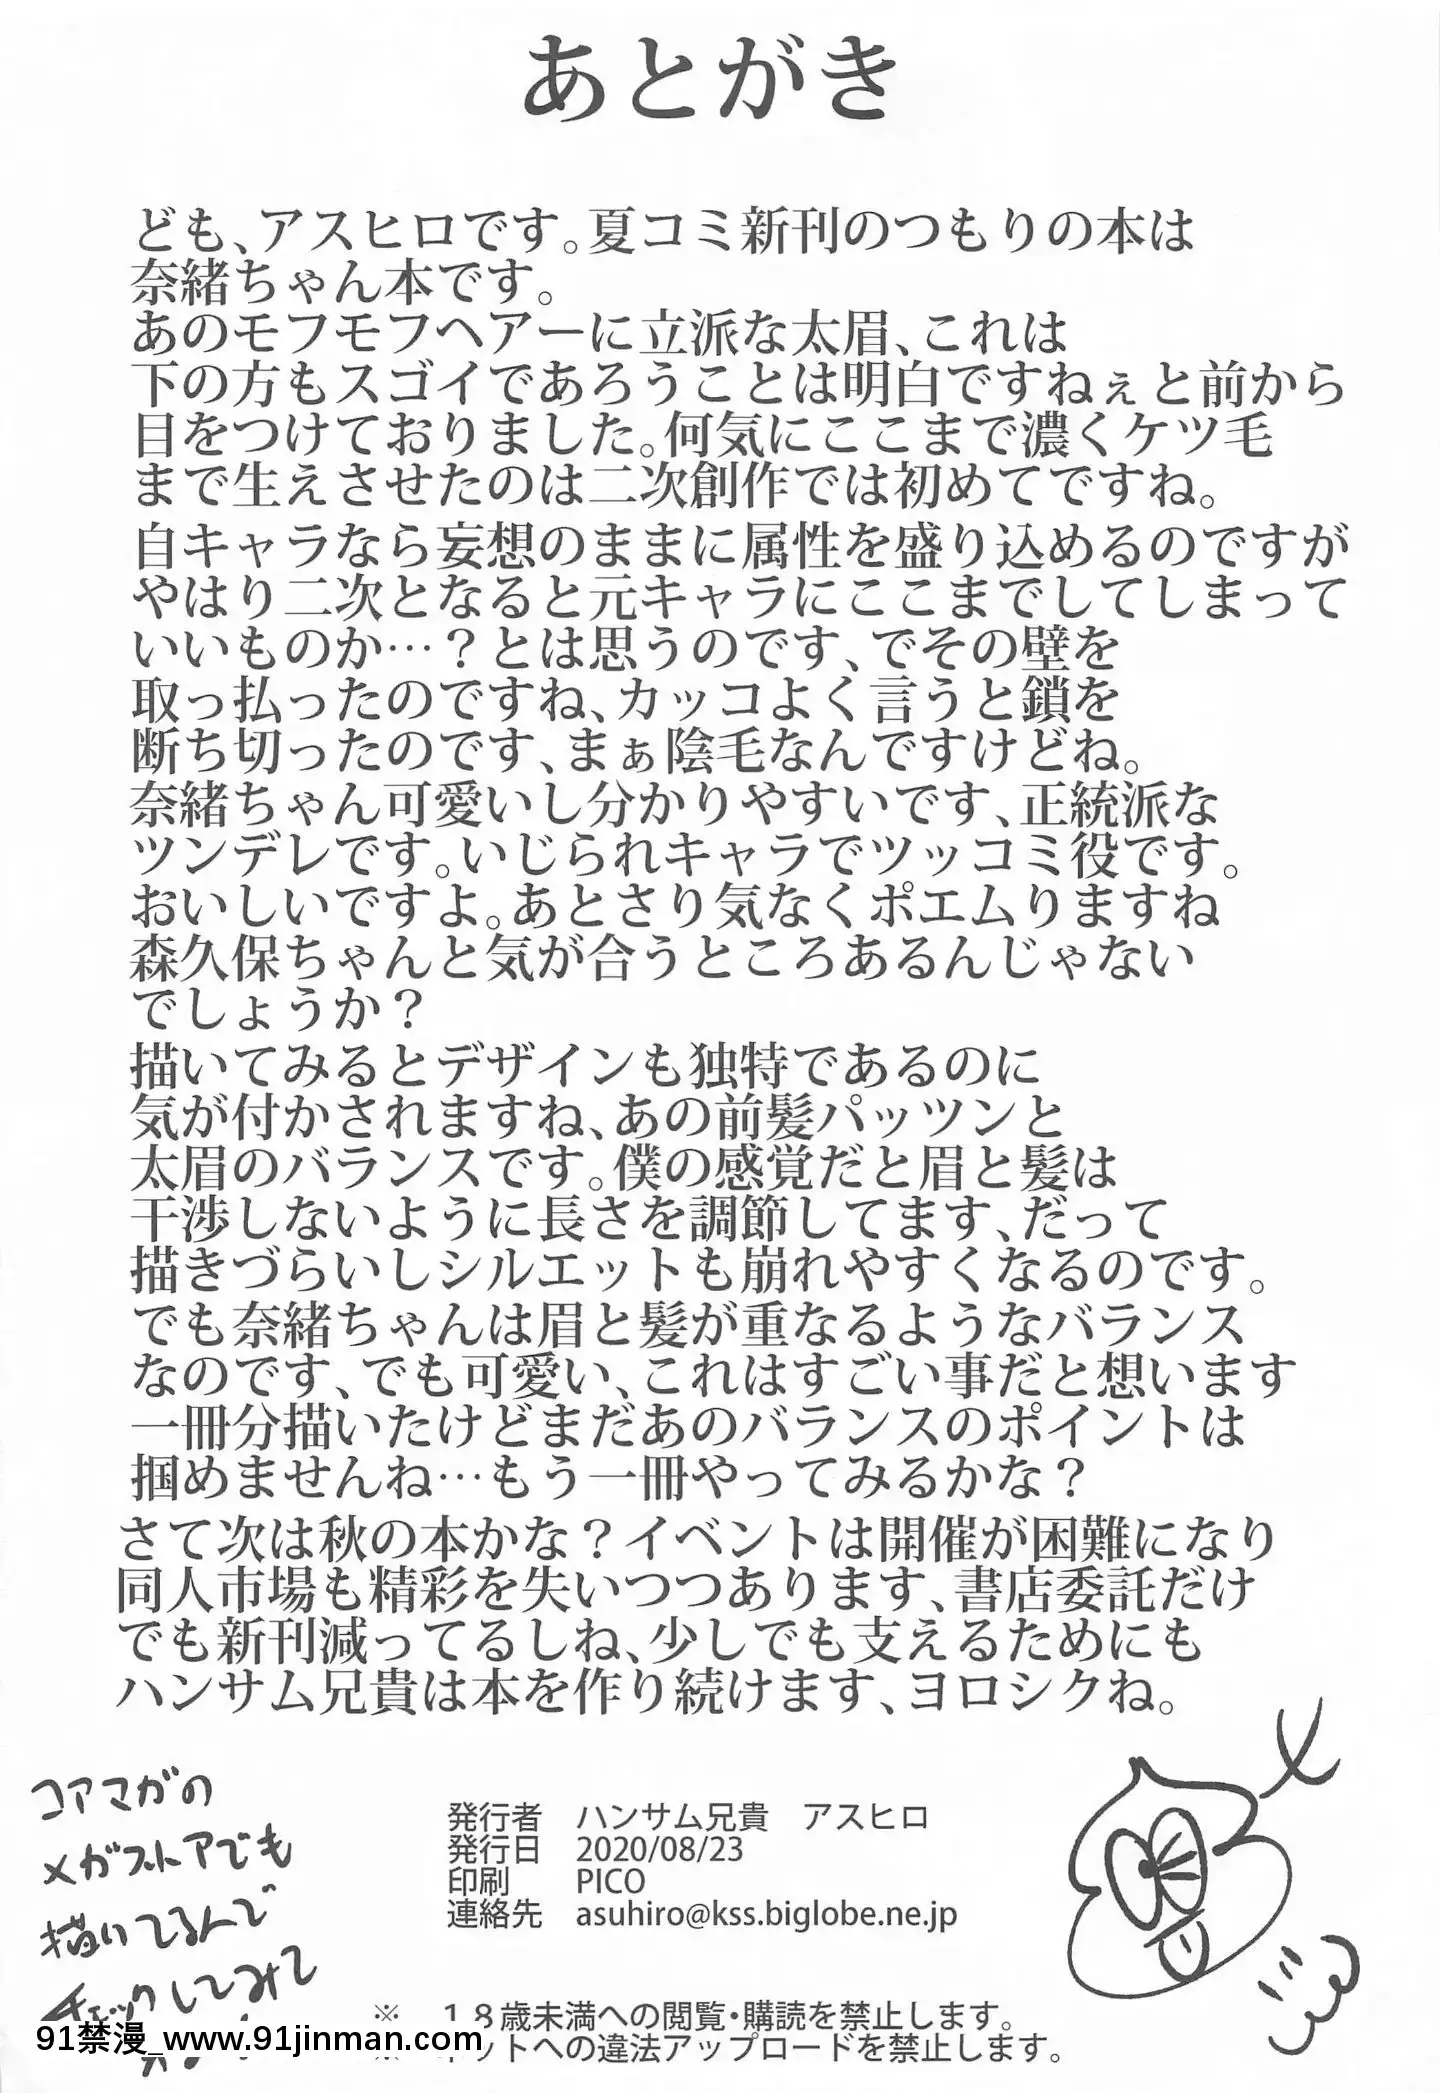 あとがき
ども、アスヒロです。夏コミ新刊のつもりの本は
奈緒ちゃん本です。
あのモフモフヘアーに立派な太眉、これは
下の方もスゴイであろうことは明白ですねぇと前から
目をつけておりました。何気にここまで濃くケツ毛
まで生えさせたのは二次創作では初めてですね。
自キャラなら妄想のままに属性を盛り込めるのですが
やはり二次となると元キャラにここまでしてしまって
いいものか…？とは思うのです、でその壁を
取っ払ったのですね、カッコよく言うと鎖を
断ち切ったのです、まぁ陰毛なんですけどね。
奈緒ちゃん可愛いし分かりやすいです、正統派な
ツンデレです。いじられキャラでツッコミ役です。
おいしいですよ。あとさり気なくポエムりますね
森久保ちゃんと気が合うところあるんじゃない
でしょうか？
描いてみるとデザインも独特であるのに
気が付かされますね、あの前髪パッツンと
太眉のバランスです。僕の感覚だと眉と髪は
干渉しないように長さを調節してます、だって
描きづらいしシルエットも崩れやすくなるのです。
でも奈緒ちゃんは眉と髪が重なるようなバランス
なのです、でも可愛い、これはすごい事だと想います
一冊分描いたけどまだあのバランスのポイントは
掴めませんね…もう一冊やってみるかな？
さて次は秋の本かな？イベントは開催が困難になり
同人市場も精彩を失いつつあります、書店委託だけ
でも新刊減ってるしね、少しでも支えるためにも
ハンサム兄貴は本を作り続けます、ヨロシクね。
コアマガの
メガストアでも
描いてるんで
チェックしてみて
発行者 ハンサム兄貴 アスヒロ
発行日 2020/08/23
印刷 PICO
連絡先 asuhiro@kss.biglobe.ne.jp
※ 18歳未満への閲覧・購読を禁止します。
※ ネットへの違法アップロードを禁止します。
91禁漫_www.91jinman.com